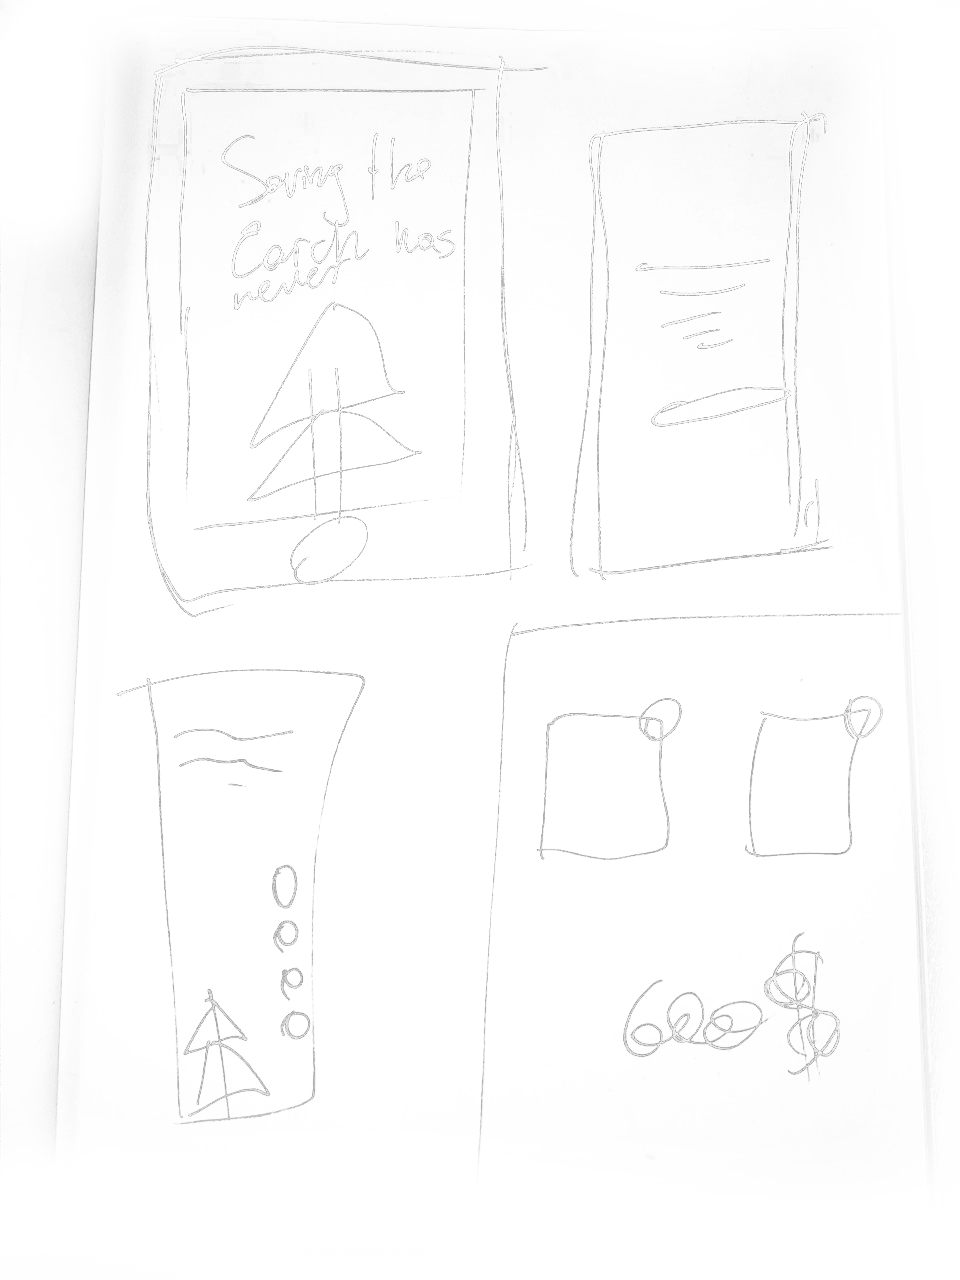 Saving the
Earth has
never
600 $